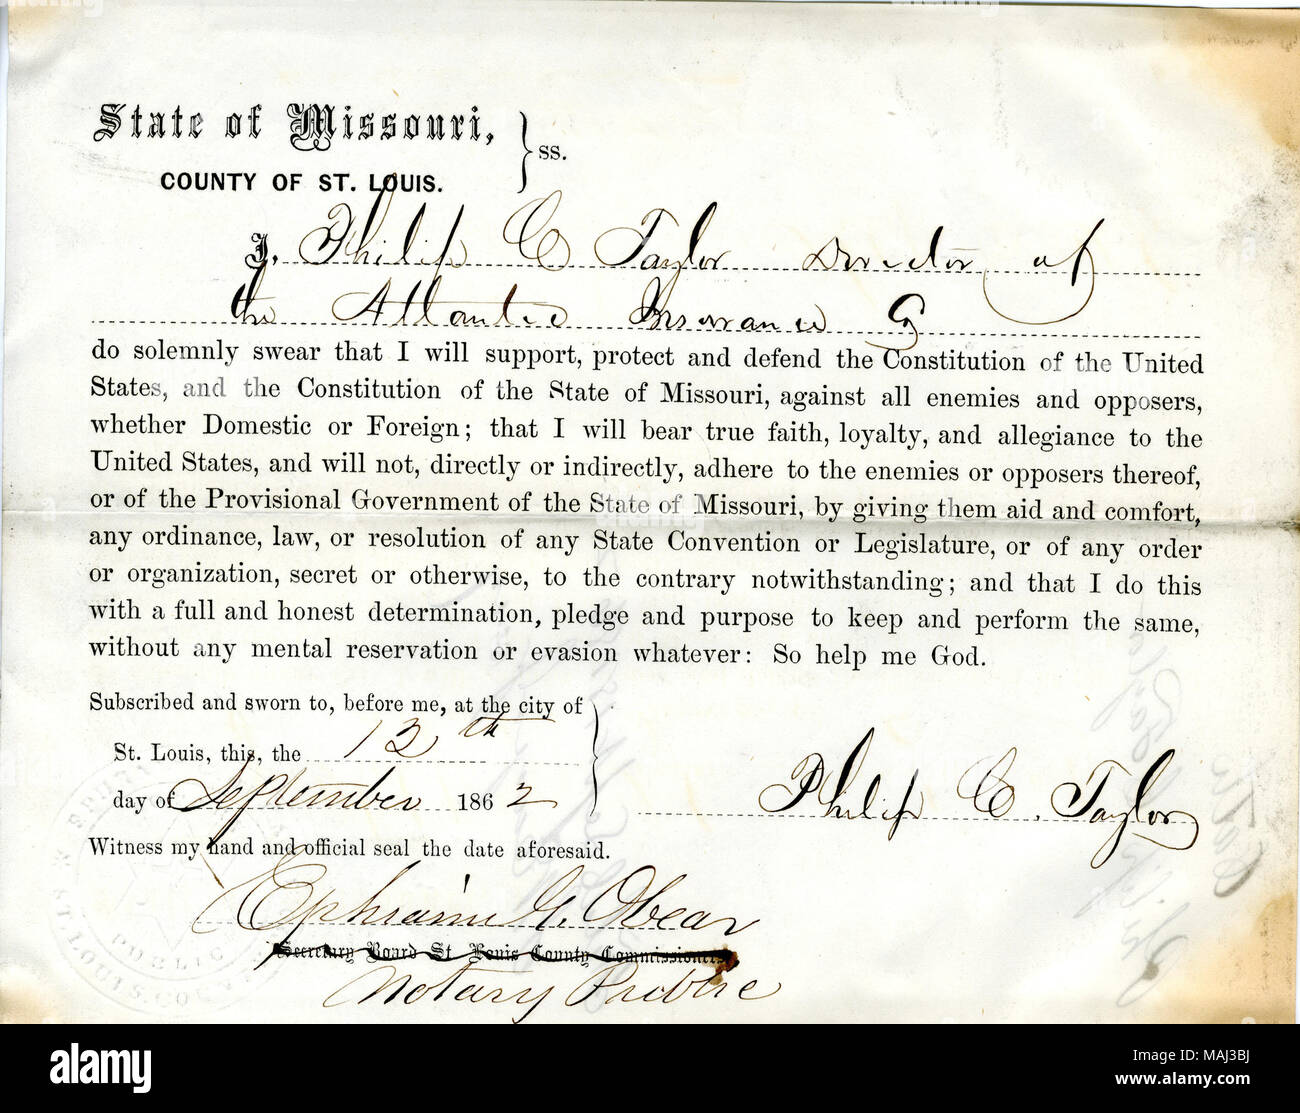 State of Missouri,
COUNTY OF ST. LOUIS.
} ss.
I, Philip C Taylor Director of
the Atlantic Insurance Co
do solemnly swear that I will support, protect and defend the Constitution of the United
States, and the Constitution of the State of Missouri, against all enemies and opposers,
whether Domestic or Foreign; that I will bear true faith, loyalty, and allegiance to the
United States, and will not, directly or indirectly, adhere to the enemies or opposers thereof,
or of the Provisional Government of the State of Missouri, by giving them aid and comfort,
any ordinance, law, or resolution of any State Convention or Legislature, or of any order
or organization, secret or otherwise, to the contrary notwithstanding; and that I do this
with a full and honest determination, pledge and purpose to keep and perform the same,
without any mental reservation or evasion whatever: So help me God.
Subscribed and sworn to, before me, at the city of
St. Louis, this, the 12th
day of September 1862
Philip C. Taylor
Witness my hand and official seal the date aforesaid.
Ephraim G. Obear
Secretary Board St. Louis County Commissioners
Notary Public
PUBLIC
ST. LOUIS. CO.
alamy
MAJ3BJ
www.alamy.com